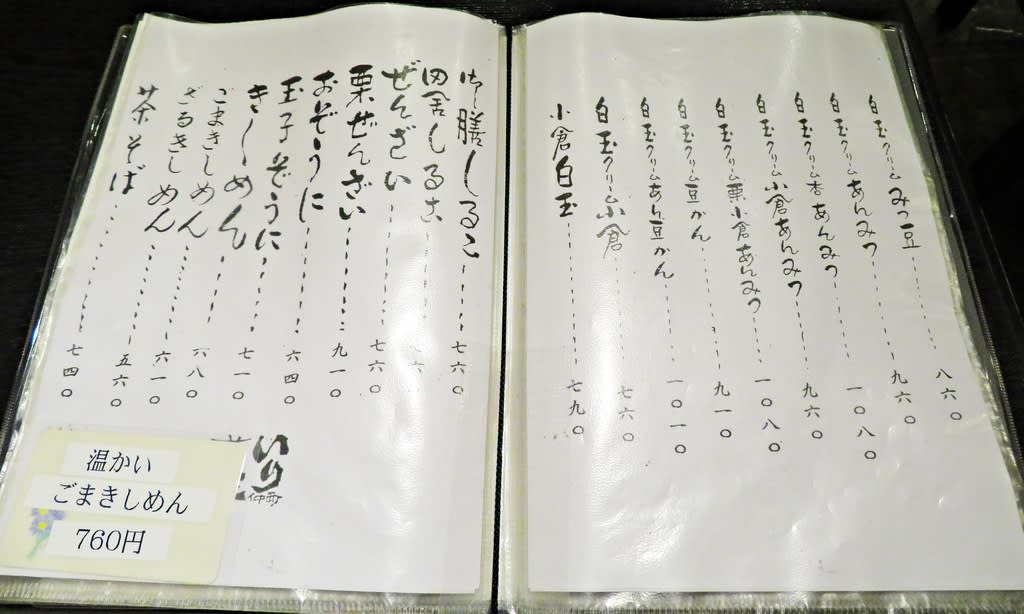 白玉クリームみつ豆………八六〇
白玉クリームあんみつ………九六〇
白玉クリーム杏あんみつ………一〇八〇
白玉クリーム小倉あんみつ………九六〇
白玉クリーム栗小倉あんみつ………一〇八〇
白玉クリーム豆かん………九一〇
白玉クリームあん豆かん………一〇一〇
白玉クリーム小倉………七六〇
小倉白玉………七九〇
御膳しるこ………七六〇
田舎しるこ………六〇
ぜんざい………七六〇
栗ぜんざい………九一〇
おぞうに………六四〇
玉子ぞうに………七一〇
きしめん………六八〇
ごまきしめん………六一〇
ざるきしめん………五六〇
茶そば………七四〇
仲町
温かい
ごまきしめん
760円